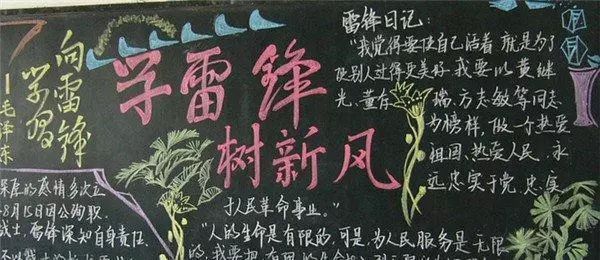 向雷锋
学习
毛泽东
学雷锋
树新风
雷锋日记:
"我觉得要使自己活着 就是为了
使别人过得更美好。我要以黄继
光、董存 瑞、方志敏等同志
为榜样,做一个热爱
祖国、热爱人民、永
远忠实于党,忠实
于人民革命事业。"
深厚的感情多次立
8月15日因公殉职
战士,雷锋深知自身责任
"人的生命是有限的,可是,为人民服务是无限
的,我要把有限的